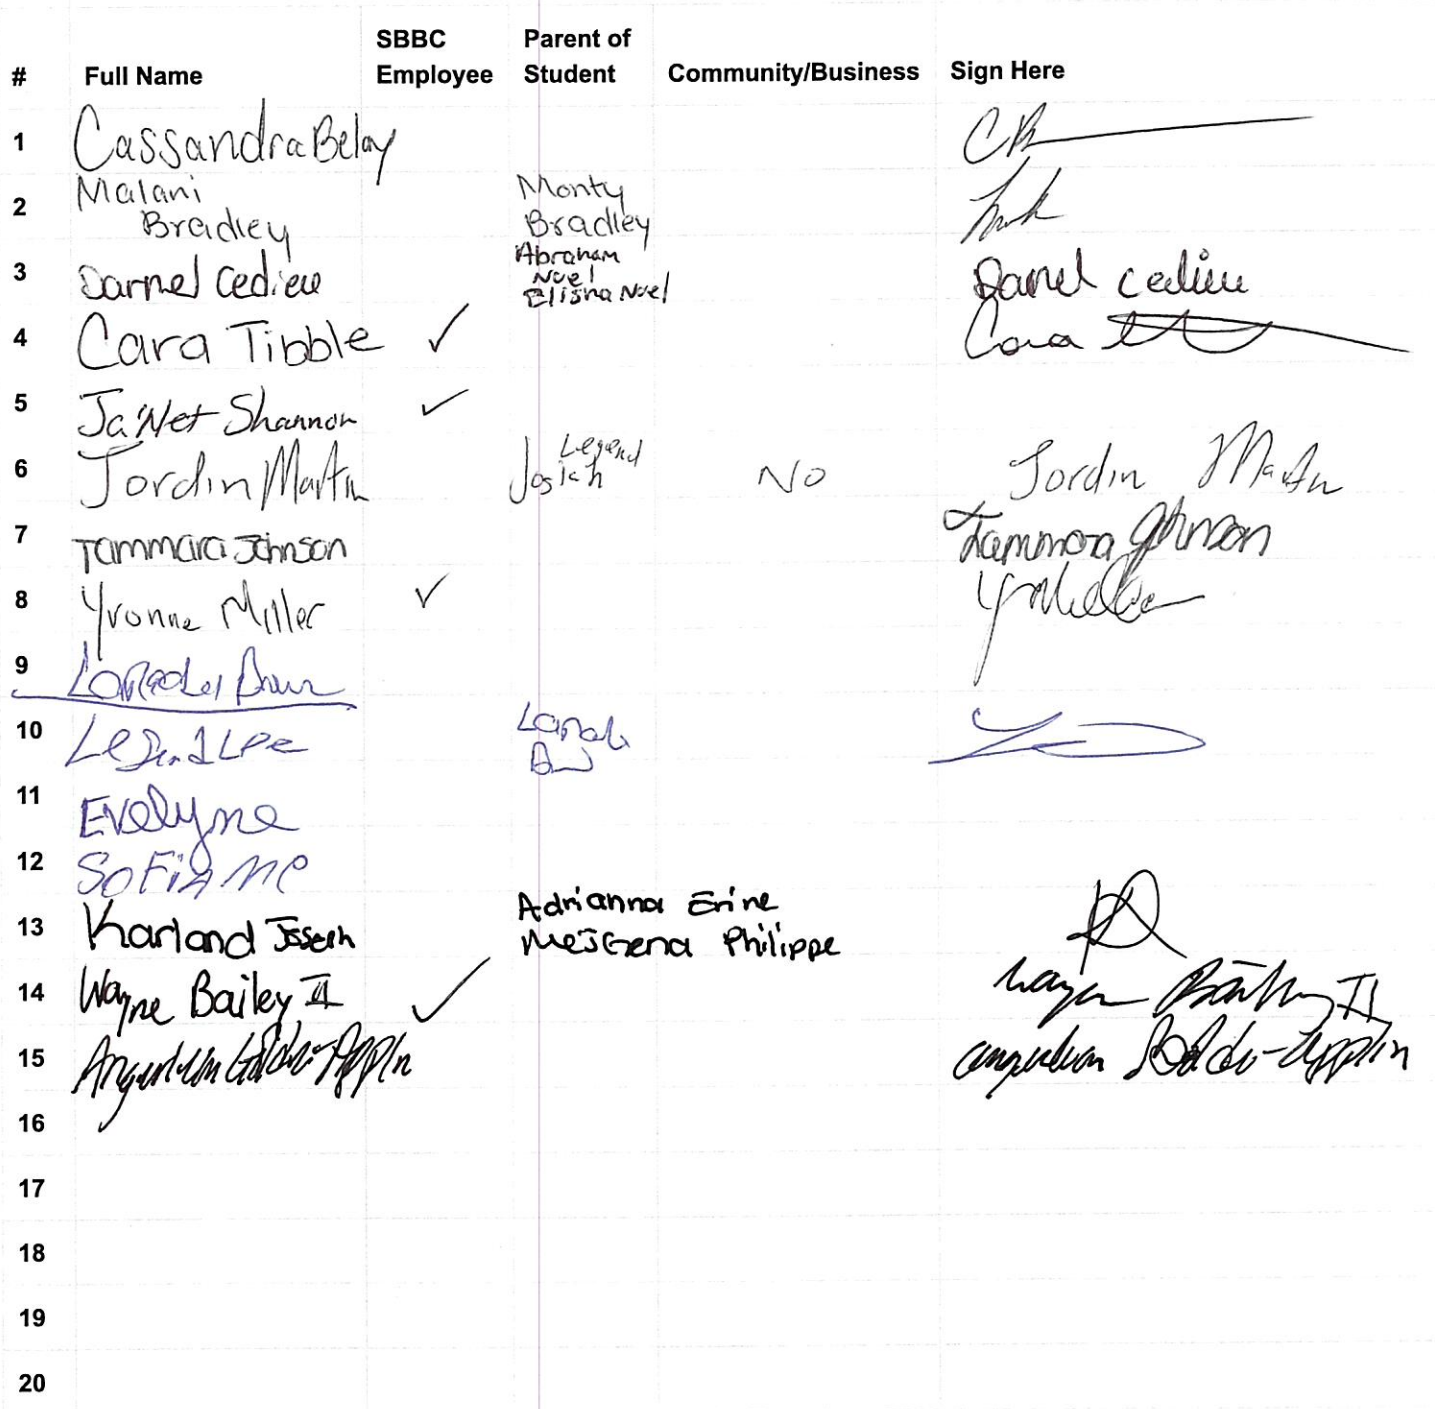 # Full Name SBBC Employee Parent of Student Community/Business Sign Here
1 Cassandra Belay CB
2 Malani Bradley Monty Bradley
3 Darmel Cedieu Abraham Noel Elisha Noel Darmel Cedieu
4 Cara Tibble ✓ Cara
5 Ja'Net Shannon ✓
6 Jordin Martin Legend Josiah No Jordin Martin
7 Tammara Johnson Tammara Johnson
8 Yvonne Miller ✓
9
10 Legend Lee
11 Evelyne
12 SOFIANE
13 Karland Joseph Adrianna Erine Mejgena Philippe
14 Wayne Bailey II ✓ Wayne Bailey II
15
16
17
18
19
20